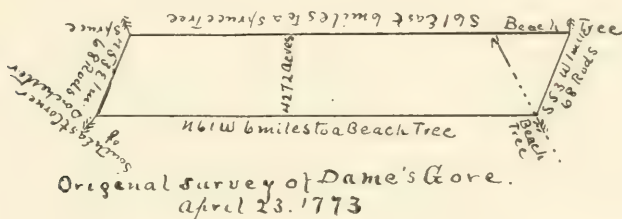 S 61 East 6 miles to a Spruce Tree
Beach Tree
Spruce
N 53 E 1 m.
68 Rods
Southeast Corner
of Dorchester
4272 Acres
S 53 W 1 mile
68 Rods
N 61 W 6 miles to a Beach Tree
Beach
Tree
Original survey of Dame's Gore.
April 23. 1773